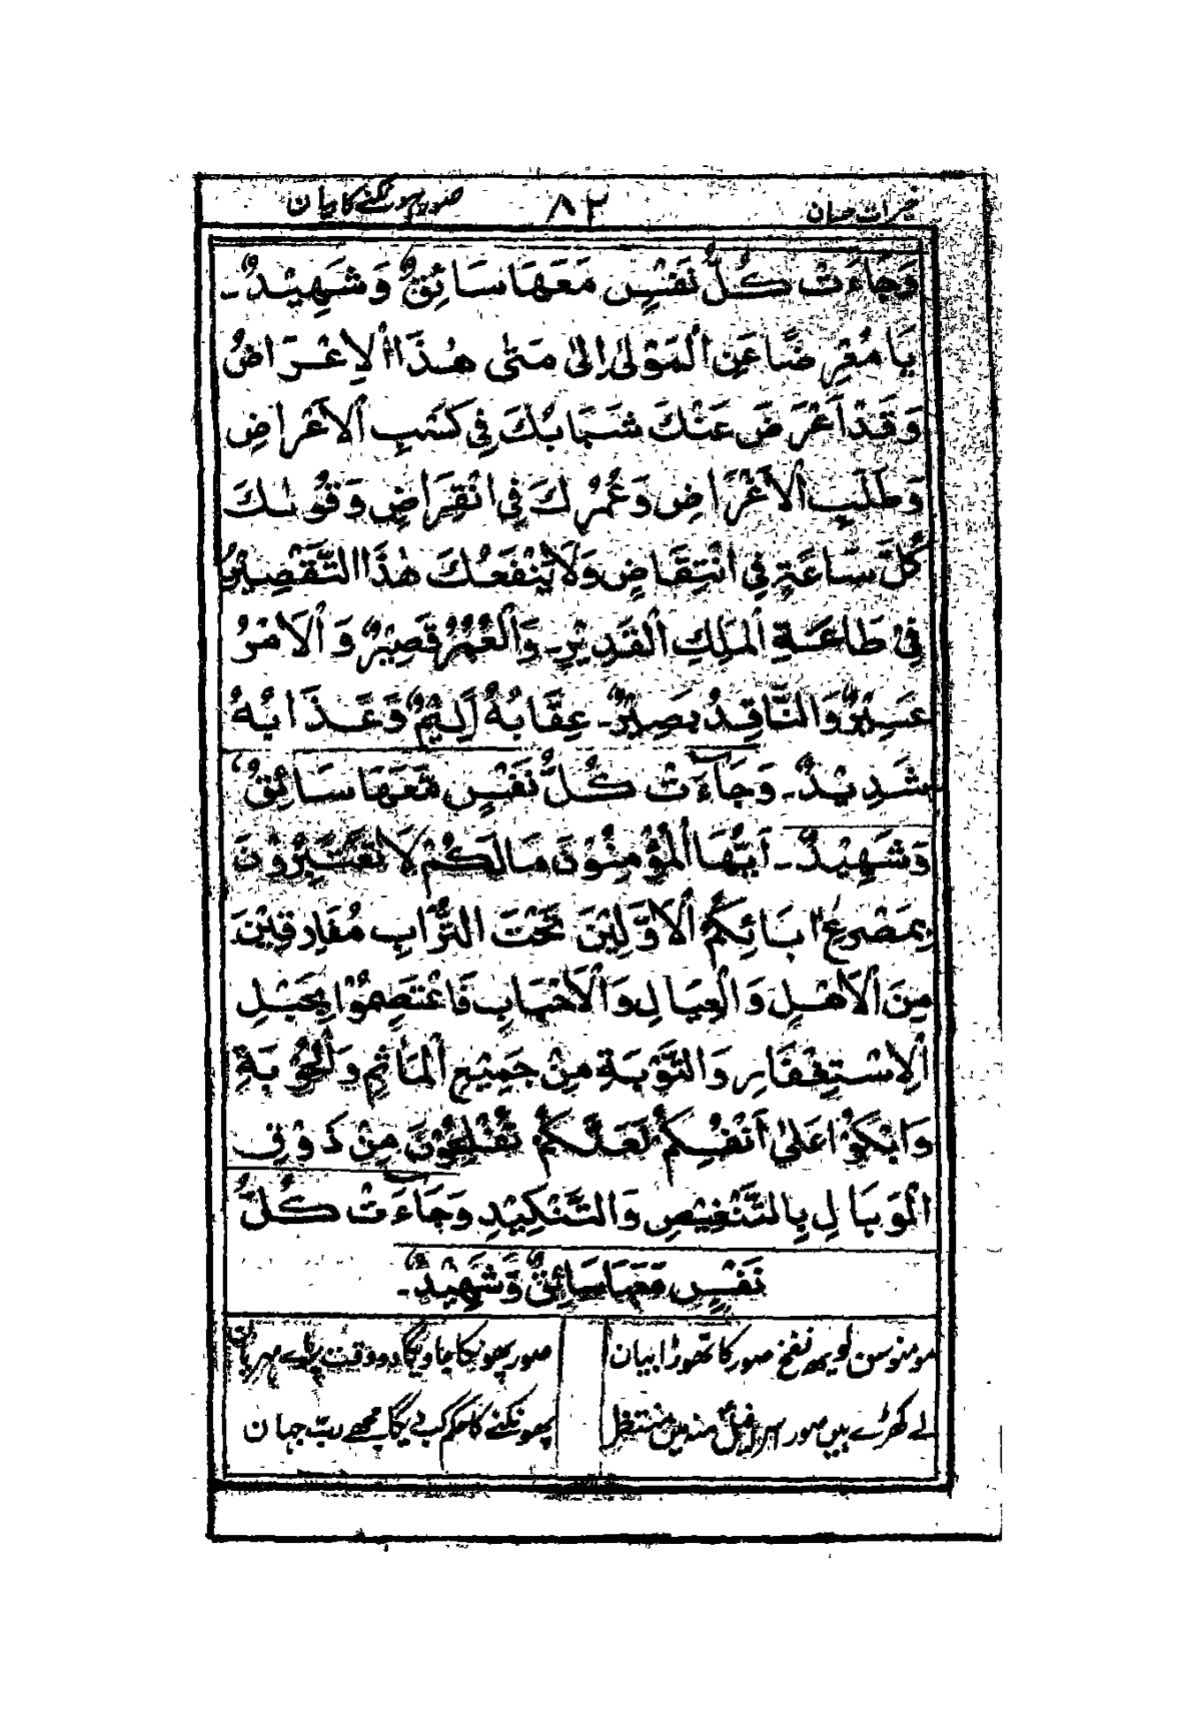 خیرات حسان ۸۲ صور پھونکنے کا بیان
وَجَاءَتْ كُلُّ نَفْسٍ مَعَهَا سَائِقٌ وَشَهِيْدٌ۔
يَا مُعْرِضًا عَنِ الْمَوْلٰى إِلٰى مَتٰى هٰذَا الْاِعْرَاضُ
وَقَدْ اَعْرَضَ عَنْكَ شَبَابُكَ فِيْ كَسْبِ الْاَعْرَاضِ
وَطَلَبِ الْاَغْرَاضِ وَعُمْرُكَ فِي انْقِرَاضٍ وَقُوٰىكَ
كُلَّ سَاعَةٍ فِي انْتِقَاضٍ وَلَا يَنْفَعُكَ هٰذَا التَّقْصِيْرُ
فِيْ طَاعَةِ الْمَلِكِ الْقَدِيْرِ۔ وَالْعُمْرُ قَصِيْرٌ وَالْاَمْرُ
عَسِيْرٌ وَالنَّاقِدُ بَصِيْرٌ۔ عِقَابُهُ اَلِيْمٌ وَعَذَابُهُ
شَدِيْدٌ۔ وَجَاءَتْ كُلُّ نَفْسٍ مَّعَهَا سَائِقٌ
وَشَهِيْدٌ۔ اَيُّهَا الْمُؤْمِنُوْنَ مَا لَكُمْ لَا تَعْتَبِرُوْنَ
بِمَصْرَعِ اٰبَائِكُمُ الْاَوَّلِيْنَ تَحْتَ التُّرَابِ مُفَارِقِيْنَ
مِنَ الْاَهْلِ وَالْعِيَالِ وَالْاَحْبَابِ فَاعْتَصِمُوْا بِحَبْلِ
الْاِسْتِغْفَارِ وَالتَّوْبَةِ مِنْ جَمِيْعِ الْمَأْثَمِ وَالْحُوْبَةِ
وَابْكُوْا عَلٰى اَنْفُسِكُمْ لَعَلَّكُمْ تُفْلِحُوْنَ مِنْ ذَوْقِ
الْوَبَالِ بِالتَّنْغِيْصِ وَالتَّنْكِيْدِ وَجَاءَتْ كُلُّ
نَفْسٍ مَّعَهَا سَائِقٌ وَّشَهِيْدٌ۔
مومنو سن لو یہ نفخ صور کا تھوڑا بیان صور پھونکا جاویگا دو وقت پیارے مہربان
لے کھڑے ہیں صور سرافیل منہ میں منتظر پھونکنے کا حکم کب دیگا مجھے رب جہان